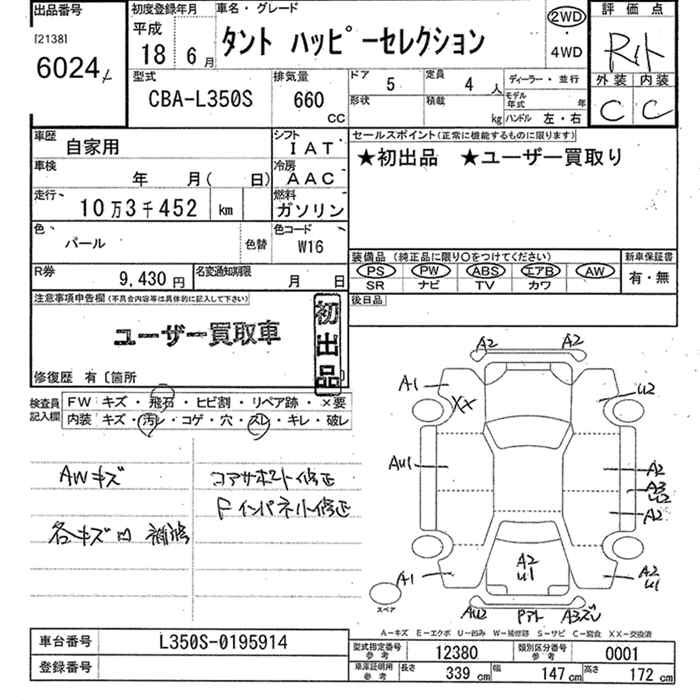 出品番号
[2138]
6024
初度登録年月
平成
18年 6月
車名・グレード
タント ハッピーセレクション
2WD
・
4WD
評価点
外装 内装
C C
型式
CBA-L350S
排気量
660
CC
ドア
5
定員
4 人
形状
積載
kg
ディーラー・並行
モデル年式 年
ハンドル 左・右
車歴
自家用
シフト
IAT
車検
年 月( 日)
冷房
AAC
走行
10万3千452 km
燃料
ガソリン
色
パール
色替
色コード
W16
R券
9,430 円
名変通知期限
月 日
セールスポイント(正常に機能するものに限ります)
★初出品 ★ユーザー買取り
装備品 (純正品に限り○をつけてください)
PS PW ABS エアB AW
SR ナビ TV カワ
新車保証書
有・無
後日品
注意事項申告欄(不具合内容等は具体的に記入して下さい)
ユーザー買取車
初出品
修復歴 有〔箇所
検査員記入欄
FW キズ・飛石・ヒビ割・リペア跡・×要
内装 キズ・汚レ・コゲ・穴・スレ・キレ・破レ
AWキズ
コアサポート修正
Fインパネル修正
各キズ凹 補修
A2 A2
A1 U2
XX
AU1
A2
A3
U2
A2
A2
U1
A1
A2
U1
スペア
AU2 A3ズレ
A-キズ E-エクボ U-凹み W-補修跡 S-サビ C-腐食 XX-交換済
車台番号
L350S-0195914
登録番号
型式指定番号
参考
12380
類別区分番号
参考
0001
車庫証明用
参考
長さ 339 cm 幅 147 cm 高さ 172 cm